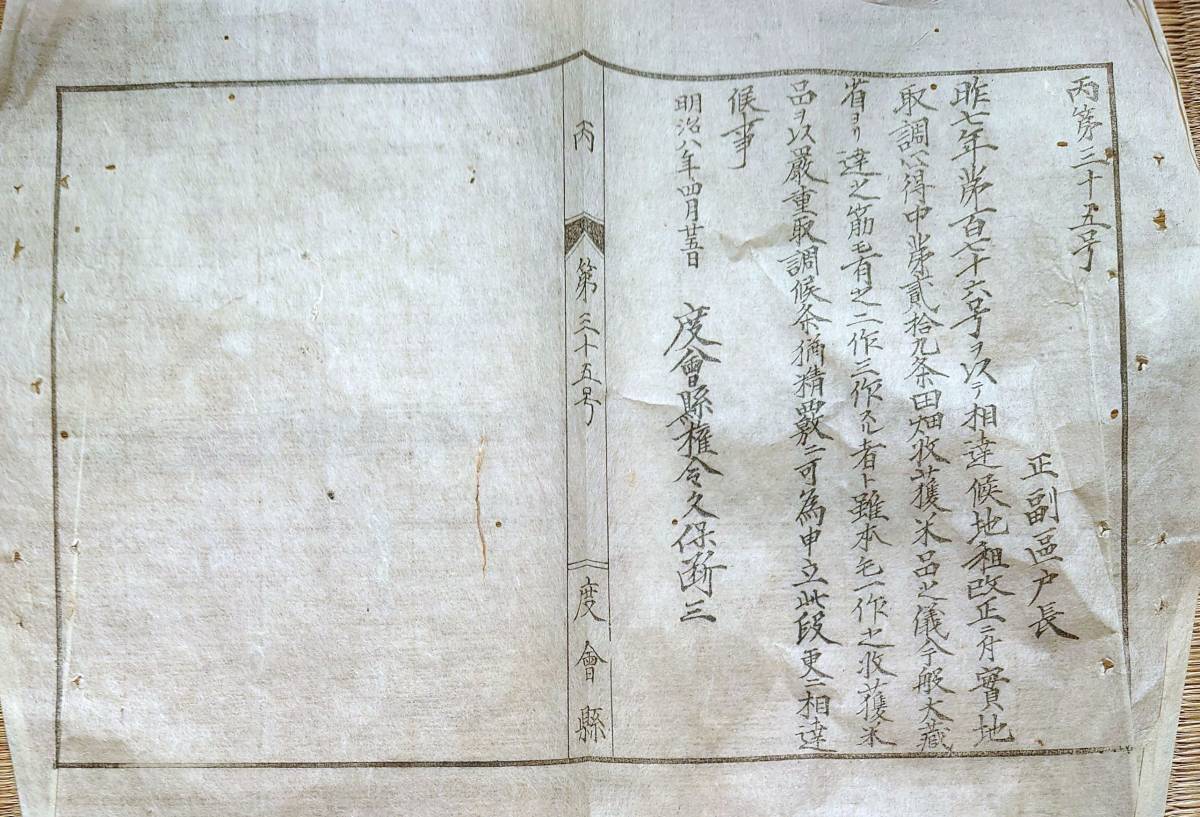 丙第三十五号
正副區戸長
昨七年第百七十六号ヲ以テ相達候地租改正ニ付實地
取調心得中第貳拾九条田畑收獲米品之儀今般大藏
省ヨリ達之筋毛有之二作三作ル者ト雖本毛一作之收獲米
品ヲ以嚴重取調候条猶精覈ニ可為申立此段更ニ相達
候事
明治八年四月廿五日 度會縣權令久保断三
丙 第三十五号 度會縣